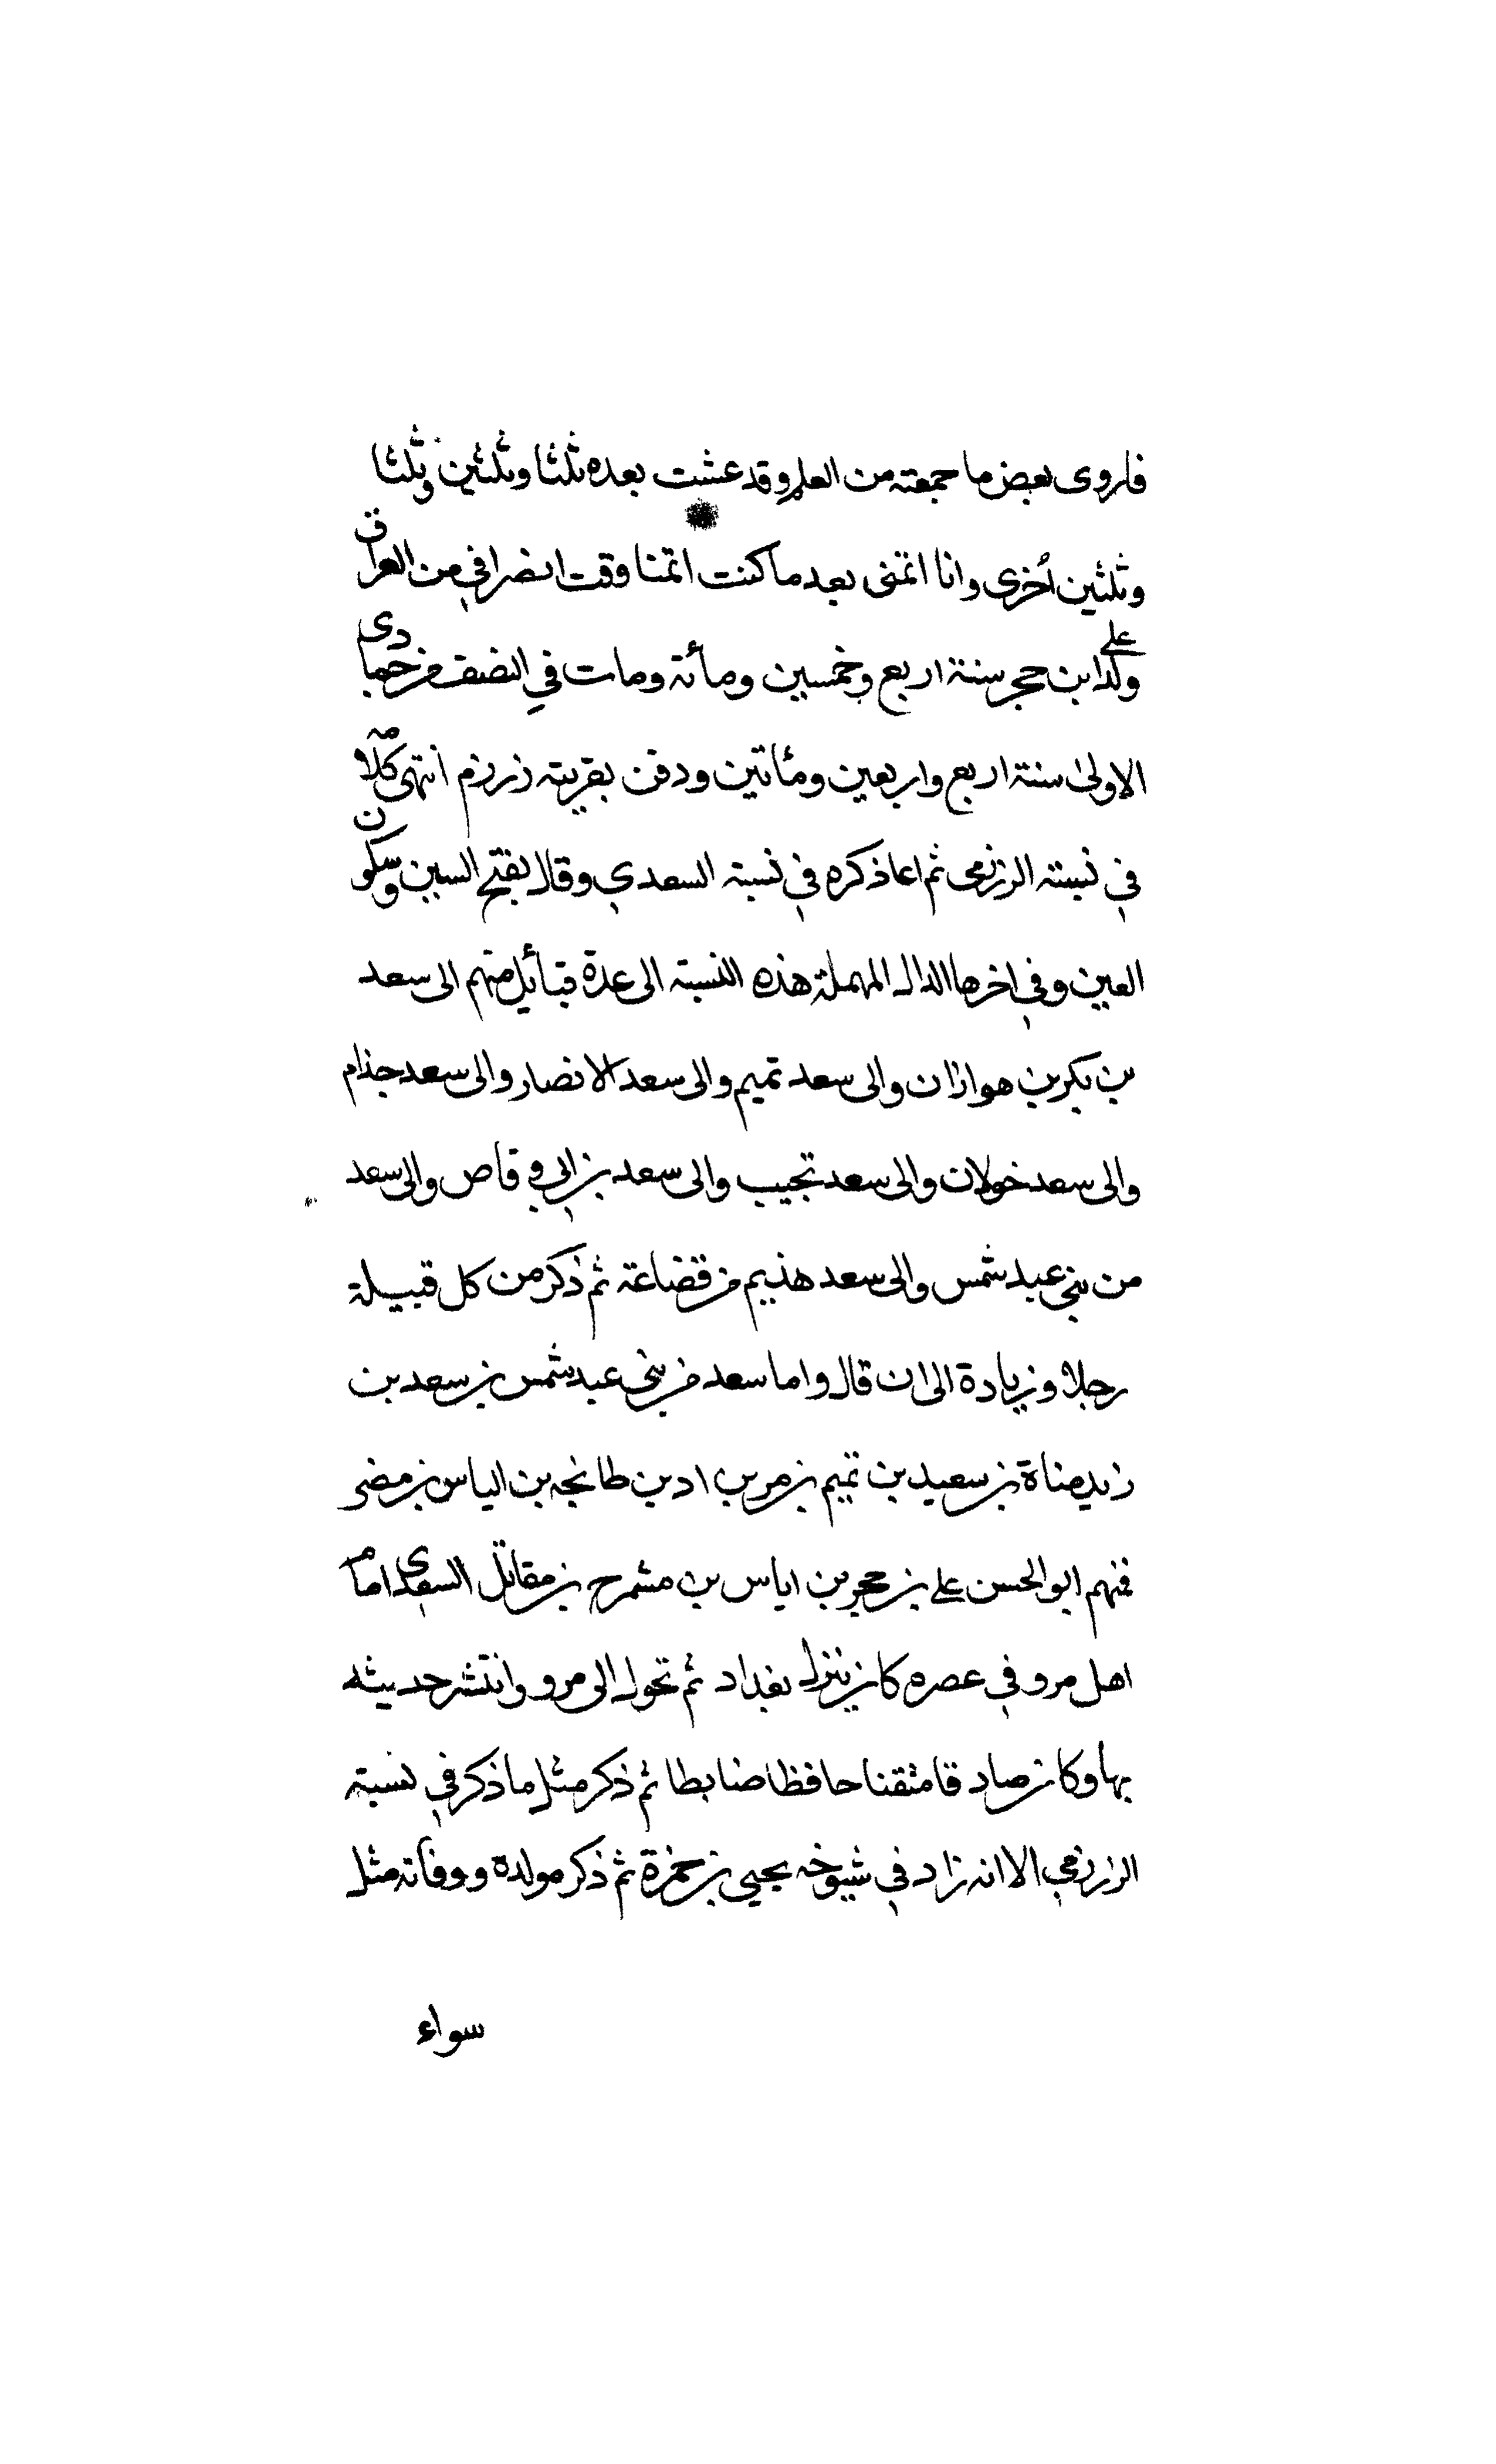 فاروى بعض ما جمعته من العلم وقد عشت بعده ثلثا وثلثين وثلثا
وثلثين أخرى وانا اتمنى بعد ما كنت اتمنا وقت انصرافي من العراق
ولد على ابن حجر سنة اربع وخمسين ومأئة ومات في النصف من جمادى
الاولى سنة اربع واربعين ومائتين ودفن بقرية زرزم انتهى كلامه
في نسبته الزرزمى ثم اعاد ذكره في نسبة السعدي وقال بفتح السين وسكون
العين وفي اخرها الدال المهملة هذه النسبة الى عدة قبائل منهم الى سعد
بن بكر بن هوازان والى سعد تميم والى سعد الانصار والى سعد جذام
والى سعد خولان والى سعد تجيب والى سعد بن ابي وقاص والى سعد
من بني عبد شمس والى سعد هذيم من قضاعة ثم ذكر من كل قبيلة
رجلا وزيادة الى ان قال واما سعد من بني عبد شمس بن سعد بن
زيد مناة بن سعيد بن تميم بن مر بن اد بن طانجه بن الياس بن مضر
فمنهم ابو الحسن على بن حجر بن اياس بن مشمرح بن مقاتل السعدى امام
اهل مرو في عصره كان ينزل بغداد ثم تحول الى مرو وانتشر حديثه
بها وكان صادقا متقنا حافظا ضابطا ثم ذكر مثل ما ذكر في نسبة
الزرزمي الا انه زاد في شيوخه يحيى بن حمزة ثم ذكر مولده ووفاته مثل
سواء